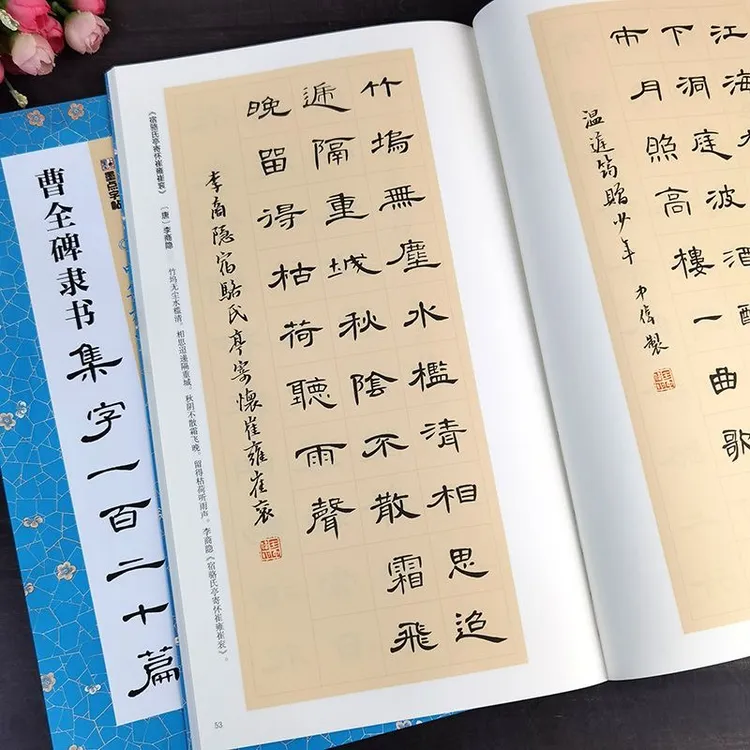 墨点字帖
曹全碑隶书
集字一百二十篇
竹塢無塵水檻清相思迢
遞隔重城秋陰不散霜飛
晚畱得枯荷聽雨聲
李商隐宿駱氏亭寄懷崔雍崔衮
《宿骆氏亭寄怀崔雍崔衮》 〔唐〕李商隐 竹坞无尘水槛清,相思迢递隔重城。秋阴不散霜飞晚,留得枯荷听雨声。李商隐《宿骆氏亭寄怀崔雍崔衮》。
53
江海
下洞庭波酒酣
市月照高樓一曲歌
温庭筠贈少年